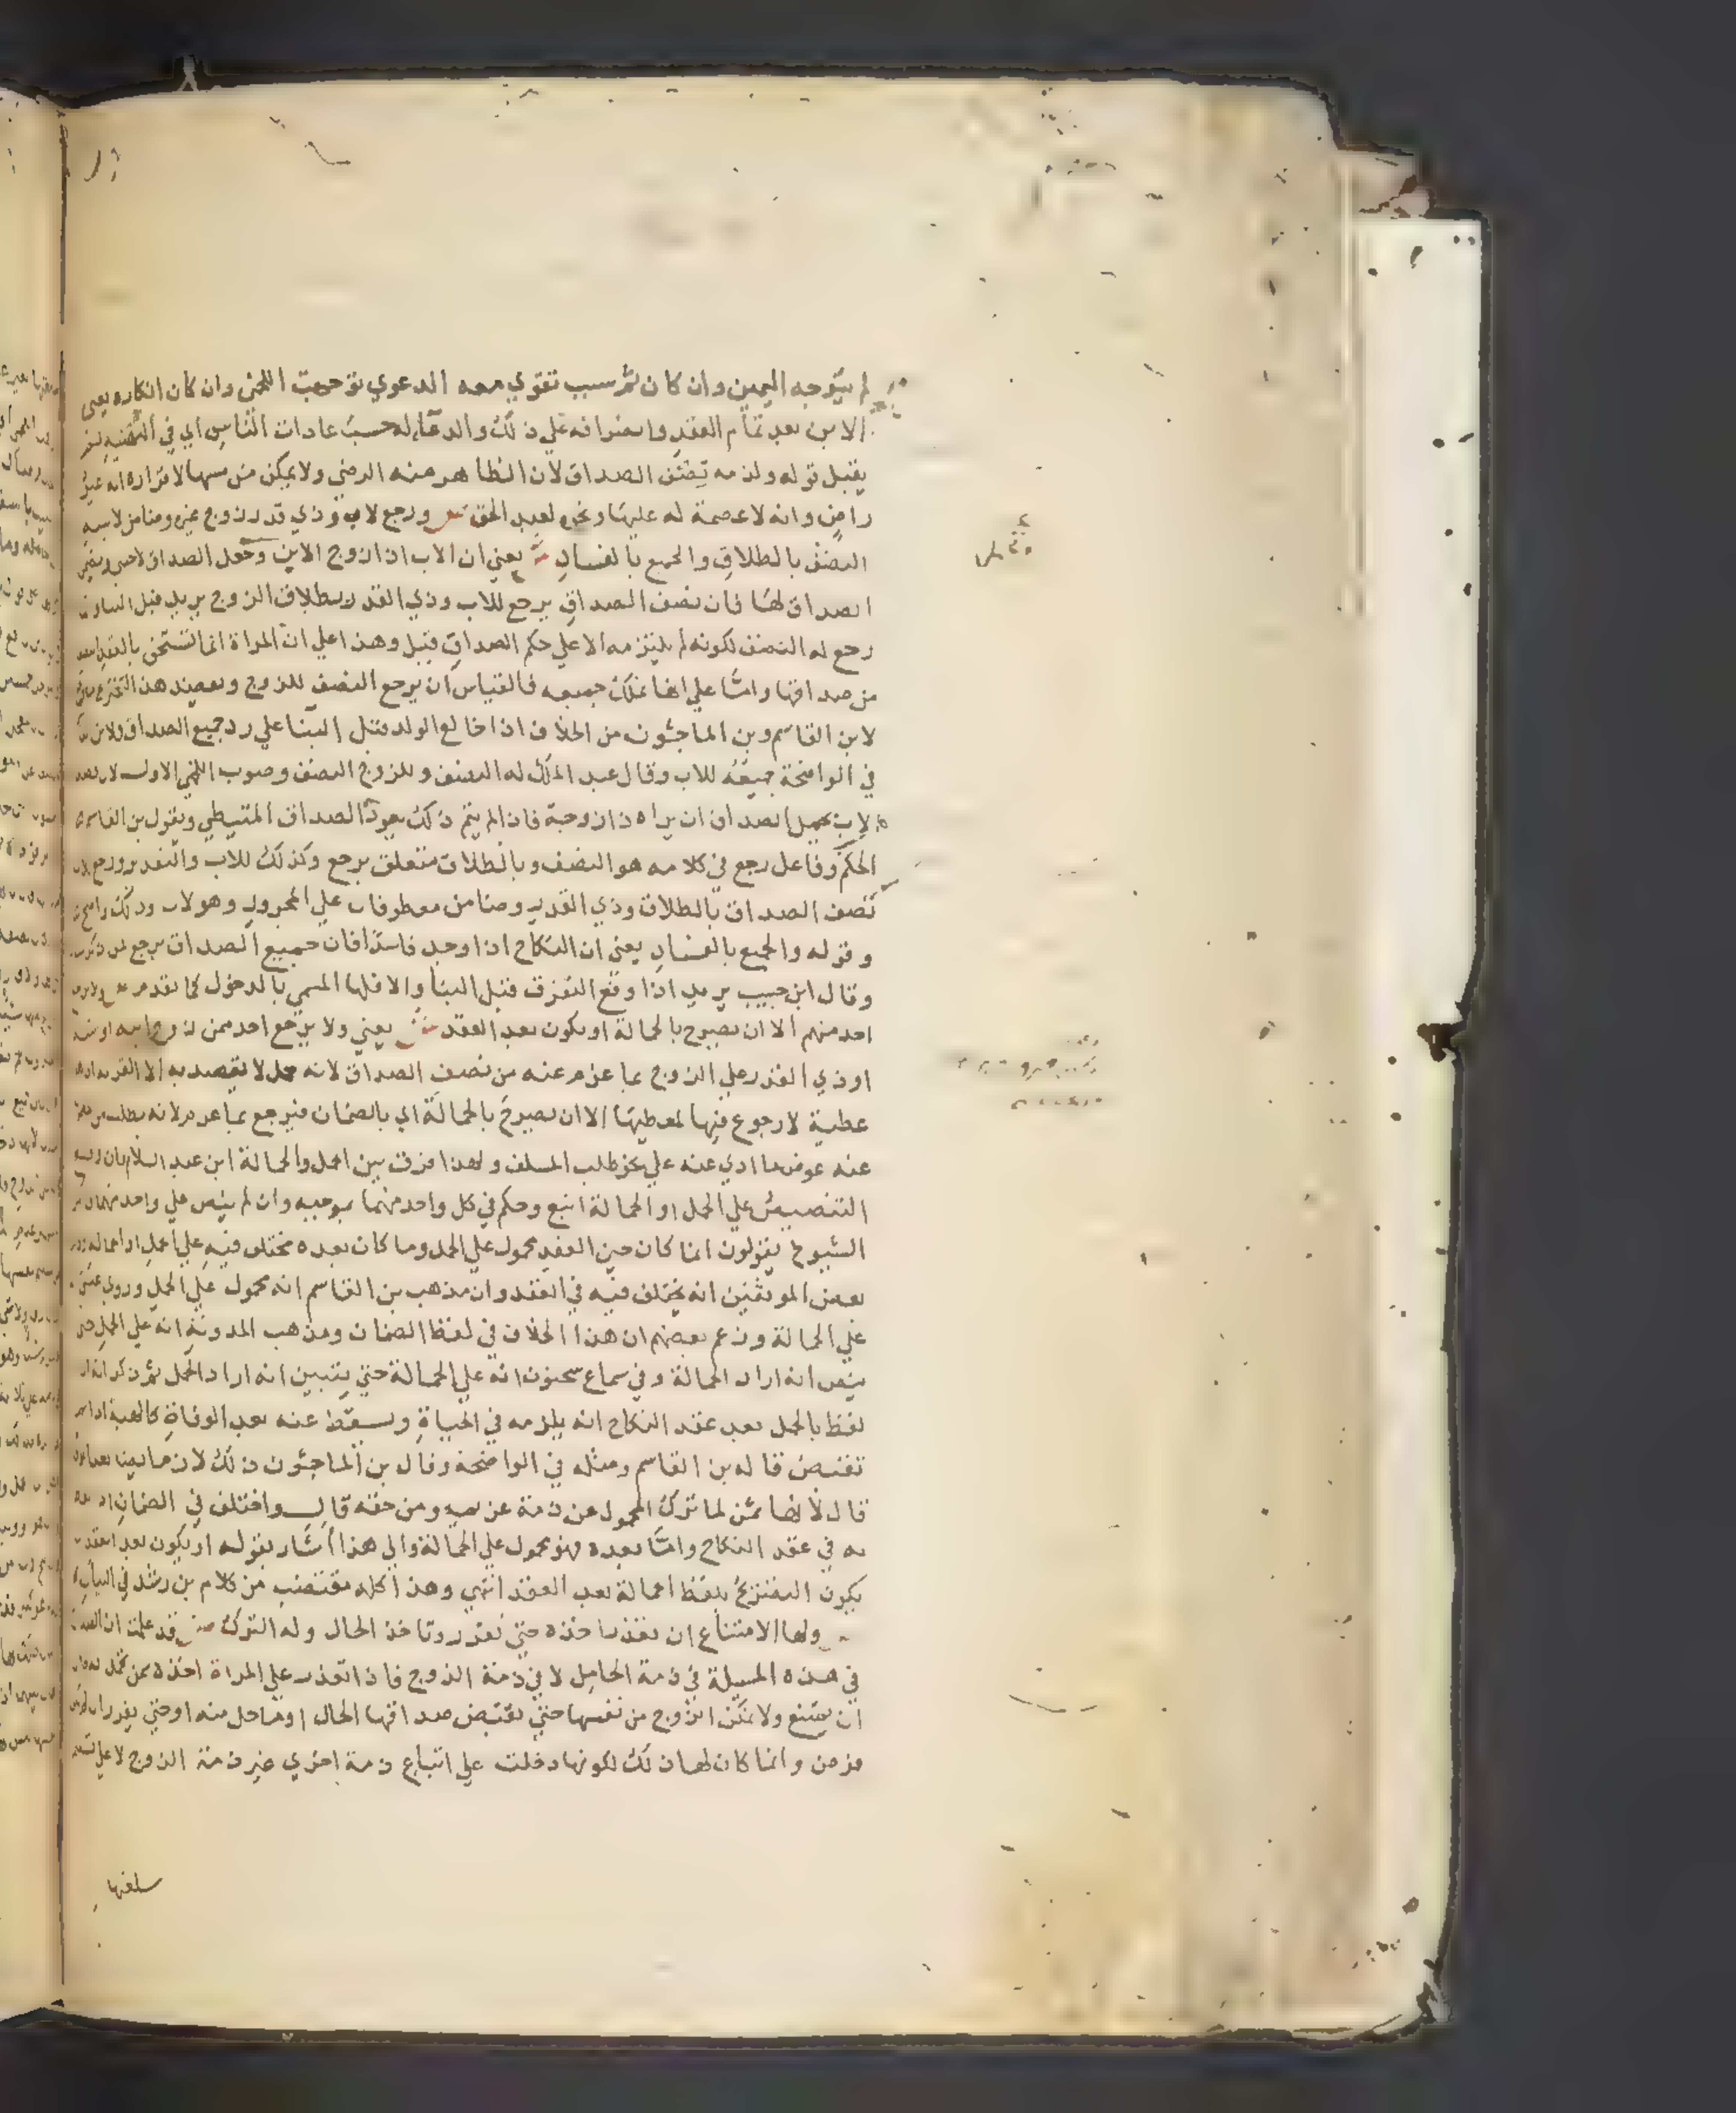 لم يتوجه اليمين وان كان ثم سبب تقوي معه الدعوي توجهت اللخمي وان كان انكاره يعني
الابن بعد تمام العقد وانصرافه علي ذلك والدعا له حسب عادات الناس اي في التهنية لم
يقبل قوله ولزمه نصف الصداق لان الظاهر منه الرضي ولا يمكن من مسها لاقراره انه غير
راض وانه لا عصمة له عليها ونحوه لعبد الحق ص ورجع لاب وذي قدر زوج غيره وضامن لابنته
النصف بالطلاق والجميع بالفساد ش يعني ان الاب اذا زوج الابن وحمل الصداق
الصداق لها فان نصف الصداق يرجع للاب وذي القدر بطلاق الزوج يريد قبل البنا
رجع له النصف لكونه لم يلتزمه الا علي حكم الصداق قبل وهذا علي ان المراة انما تستحق بالعقد نصف
من صداقها واما علي انها تملك جميعه فالقياس ان يرجع النصف للزوج ويعضد هذا التخريج
لابن القاسم وبن الماجشون من الخلاف اذا خالع الولد قبل البنا علي رد جميع الصداق
في الواضحة جميعه للاب وقال عبد الملك له النصف وللزوج النصف وصوب اللخمي الاول لان قصد
الاب بحمل الصداق ان يراه ذا زوجة فاذا لم يتم ذلك يعود الصداق المتيطي وبقول بن القاسم
الحكم وفاعل رجع في كلامه هو النصف وبالطلاق متعلق برجع وكذلك للاب والتقدير ورجع للاب
نصف الصداق بالطلاق وذي القدر وضامن معطوفان علي المجرور وهو لاب وذلك واضح
وقوله والجميع بالفساد يعني ان النكاح اذا وجد فاسدا فان جميع الصداق يرجع لمن ذكر
وقال ابن حبيب يريد اذا وقع التفرق قبل البنا والا فلها المسمي بالدخول كما تقدم ص ولا يرجع
احد منهم الا ان يصرح بالحمالة او يكون بعد العقد ش يعني ولا يرجع احد ممن زوج ابنه او
او ذي القدر علي الزوج بما غرم عنه من نصف الصداق لانه حمل لا يقصد به الا القربة
عطية لا رجوع فيها لمعطيها الا ان يصرح بالحمالة اي بالضمان فيرجع بما غرم لانه
عنه عوض ما ادي عنه علي نحو طلب المسلف ولهذا فرق بين الحمل والحمالة ابن عبد السلام فان وقع
التنصيص علي الحمل او الحمالة اتبع وحكم في كل واحد منهما بموجبه وان لم ينص علي واحد منهما
الشيوخ يقولون انما كان حين العقد محمول علي الحمل وما كان بعده مختلف فيه علي الحمل او الحمالة
بعض الموثقين انه يختلف فيه في العقد وان مذهب بن القاسم انه محمول علي الحمل وروي عيسي
علي الحمالة وزعم بعضهم ان هذا الخلاف في لفظ الضمان ومذهب المدونة انه علي الحمل حتي
ينص انه اراد الحمالة وفي سماع سحنون انه علي الحمالة حتي يتبين انه اراد الحمل ثم ذكر انه
لفظ بالحمل بعد عقد النكاح انه يلزمه في الحياة ويسقط عنه بعد الوفاة كالهبة اذا لم
تقبض قاله بن القاسم ومثله في الواضحة وقال بن الماجشون ذلك لازم
قال لانها ثمن لما ترك المحمول عن ذمة غريمه ومن حقه قال واختلف في الضمان
به في عقد النكاح واما بعده فهو محمول علي الحمالة والي هذا اشار بقوله او يكون بعد العقد
يكون التصريح بلفظ الحمالة بعد العقد انتهي وهذا كله مقتضب من كلام بن رشد في البيان
ص ولها الامتناع ان تعذر اخذه حتي تقدر وتاخذ الحال وله الترك ش قد علمت ان الصداق
في هذه المسيلة في ذمة الحامل لا في ذمة الزوج فاذا تعذر علي المراة اخذه ممن تحمل
ان تمتنع ولا تمكن الزوج من نفسها حتي تقبض صداقها الحال او ما حل منه او حتي يقدر ان
فرض وانما كان لها ذلك لكونها دخلت علي اتباع ذمة اخري غير ذمة الزوج لا علي تسليم
سلعتها